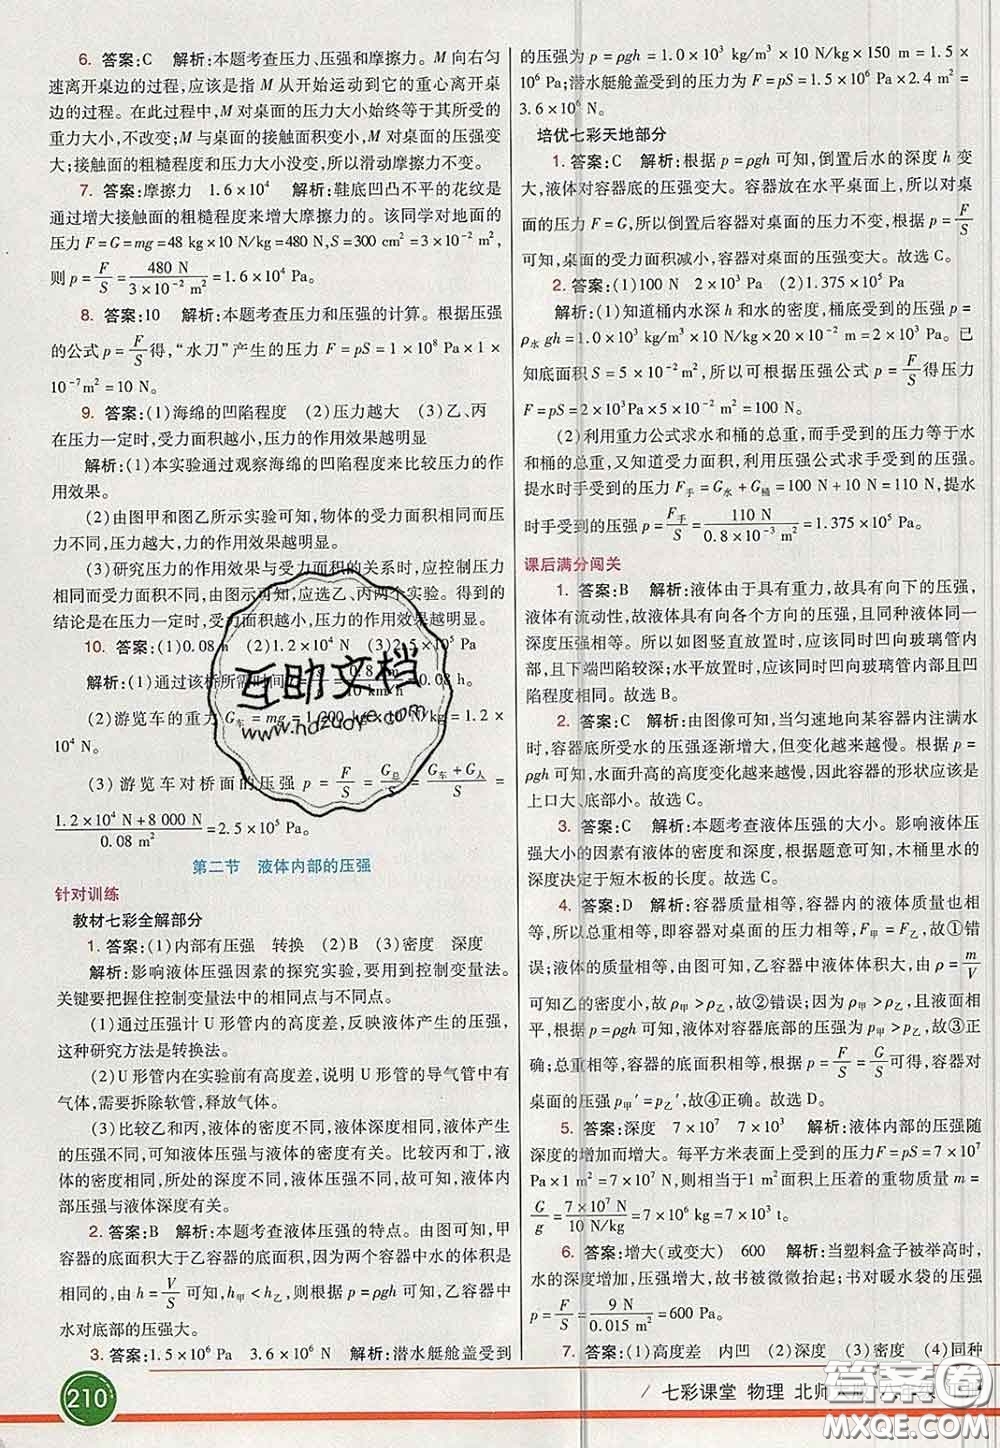 6. 答案:C　解析:本题考查压力、压强和摩擦力。M 向右匀
速离开桌边的过程,应该是指 M 从开始运动到它的重心离开桌
边的过程。在此过程中,M 对桌面的压力大小始终等于其所受的
重力大小,不改变;M 与桌面的接触面积变小,M 对桌面的压强变
大;接触面的粗糙程度和压力大小没变,所以滑动摩擦力不变。
7. 答案:摩擦力　1.6×10⁴　解析:鞋底凹凸不平的花纹是
通过增大接触面的粗糙程度来增大摩擦力的。该同学对地面的
压力 F=G=mg=48 kg×10 N/kg=480 N,S=300 cm²=3×10⁻² m²,
则 p=F/S=480 N/(3×10⁻² m²)=1.6×10⁴ Pa。
8. 答案:10　解析:本题考查压力和压强的计算。根据压强
的公式 p=F/S得,“水刀”产生的压力 F=pS=1×10⁸ Pa×1×
10⁻⁷m²=10 N。
9. 答案:(1)海绵的凹陷程度　(2)压力越大　(3)乙、丙
在压力一定时,受力面积越小,压力的作用效果越明显
解析:(1)本实验通过观察海绵的凹陷程度来比较压力的作
用效果。
(2)由图甲和图乙所示实验可知,物体的受力面积相同而压
力不同,压力越大,力的作用效果越明显。
(3)研究压力的作用效果与受力面积的关系时,应控制压力
相同而受力面积不同,由图示可知,应选乙、丙两个实验。得到的
结论是在压力一定时,受力面积越小,压力的作用效果越明显。
10. 答案:(1)0.08 h　(2)1.2×10⁴ N　(3)2.5×10⁵ Pa
解析:(1)通过该桥所需时间 =0.8 km/10 km/h=0.08 h。
(2)游览车的重力 G车=mg=1 200 kg×10 N/kg=1.2×
10⁴ N。
(3)游览车对桥面的压强 p=F/S=G总/S=(G车+G人)/S=
(1.2×10⁴ N+8 000 N)/0.08 m²=2.5×10⁵ Pa。
第二节　液体内部的压强
针对训练
教材七彩全解部分
1. 答案:(1)内部有压强　转换　(2)B　(3)密度　深度
解析:影响液体压强因素的探究实验,要用到控制变量法。
关键要把握住控制变量法中的相同点与不同点。
(1)通过压强计 U 形管内的高度差,反映液体产生的压强,
这种研究方法是转换法。
(2)U 形管内在实验前有高度差,说明 U 形管的导气管中有
气体,需要拆除软管,释放气体。
(3)比较乙和丙,液体的密度不同,液体深度相同,液体产生
的压强不同,可知液体压强与液体的密度有关。比较丙和丁,液
体的密度相同,所处的深度不同,液体压强不同,故可知,液体内
部压强与液体深度有关。
2. 答案:B　解析:本题考查液体压强的特点。由图可知,甲
容器的底面积大于乙容器的底面积,因为两个容器中水的体积是
相同的,由 h=V/S可知,h甲<h乙,又根据 p=ρgh 可知,乙容器中
水对底部的压强大。
3. 答案:1.5×10⁶ Pa　3.6×10⁶ N　解析:潜水艇舱盖受到
的压强为 p=ρgh=1.0×10³ kg/m³×10 N/kg×150 m=1.5×
10⁶ Pa;潜水艇舱盖受到的压力 F=pS=1.5×10⁶ Pa×2.4 m²=
3.6×10⁶ N。
培优七彩天地部分
1. 答案:C　解析:根据 p=ρgh 可知,倒置后水的深度 h 变
大,液体对容器底的压强变大。容器放在水平桌面上,所以对桌
面的压力 F=G,所以倒置后容器对桌面的压力不变,根据 p=F/S
可知,桌面的受力面积减小,容器对桌面的压强变大。故选 C。
2. 答案:(1)100 N　2×10³ Pa　(2)1.375×10⁵ Pa
解析:(1)知道桶内水深 h 和水的密度,桶底受到的压强 p=
ρ水gh=1.0×10³ kg/m³×10 N/kg×20×10⁻² m=2×10³ Pa。已
知底面积 S=5×10⁻² m²,所以可根据压强公式 p=F/S得压力
F=pS=2×10³Pa×5×10⁻² m²=100 N。
(2)利用重力公式求水和桶的总重,而手受到的压力等于水
和桶的总重,又知道受力面积,利用压强公式求手受到的压强。
提水时手受到的压力 F手=G水+G桶=100 N+10 N=110 N,提水
时手受到的压强 p=F手/S=110 N/(0.8×10⁻³ m²)=1.375×10⁵ Pa。
课后满分闯关
1. 答案:B　解析:液体由于具有重力,故具有向下的压强,
液体有流动性,故液体具有向各个方向的压强,且同种液体同一
深度压强相等。所以如图竖直放置时,应该同时凹向玻璃管内
部,且下端凹陷较深;水平放置时,应该同时凹向玻璃管内部且凹
陷程度相同。故选 B。
2. 答案:C　解析:由图像可知,当匀速地向某容器内注满水
时,容器底所受水的压强逐渐增大,但变化越来越慢。根据 p=
ρgh 可知,水面升高的高度变化越来越慢,因此容器的形状应该是
上口大、底部小。故选 C。
3. 答案:C　解析:本题考查液体压强的大小。影响液体压
强大小的因素有液体的密度和深度,根据题意可知,木桶里水的
深度决定于短木板的长度。故选 C。
4. 答案:D　解析:容器质量相等,容器内的液体质量也相
等,所以总重相等,即容器对桌面的压力相等,F甲=F乙,故①错
误;液体的质量相等,由图可知,乙容器中液体体积大,由 ρ=m/V
可知乙的密度小,故 ρ甲>ρ乙,故②错误;因为 ρ甲>ρ乙,液面相
平,根据 p=ρgh 可知,液体对容器底部的压强 p甲>p乙,故③正
确;总重相等,容器的底面积相等,根据 p=F/S=G/S可得,容器对
桌面的压强 p甲′=p乙′,故④正确。故选 D。
5. 答案:深度　7×10⁷　7×10⁶　解析:液体内部的压强随
深度的增加而增大。每平方米表面上受到的压力 F=pS=7×10⁷
Pa×1 m²=7×10⁷ N,则相当于1 m²面积上压着的重物质量 m=
G/g=7×10⁷ N/10 N/kg=7×10⁶ kg=7×10³ t。
6. 答案:增大(或变大)　600　解析:当塑料盒子被举高时,
水的深度增加,压强增大,故书被微微抬起;书对暖水袋的压强
p=F/S=9 N/0.015 m²=600 Pa。
7. 答案:(1)高度差　内凹　(2)深度　(3)密度　(4)同种
210
七彩课堂　物理　北师大版
互助文档
www.hdzuoye.com
答案圈
MXQE.COM